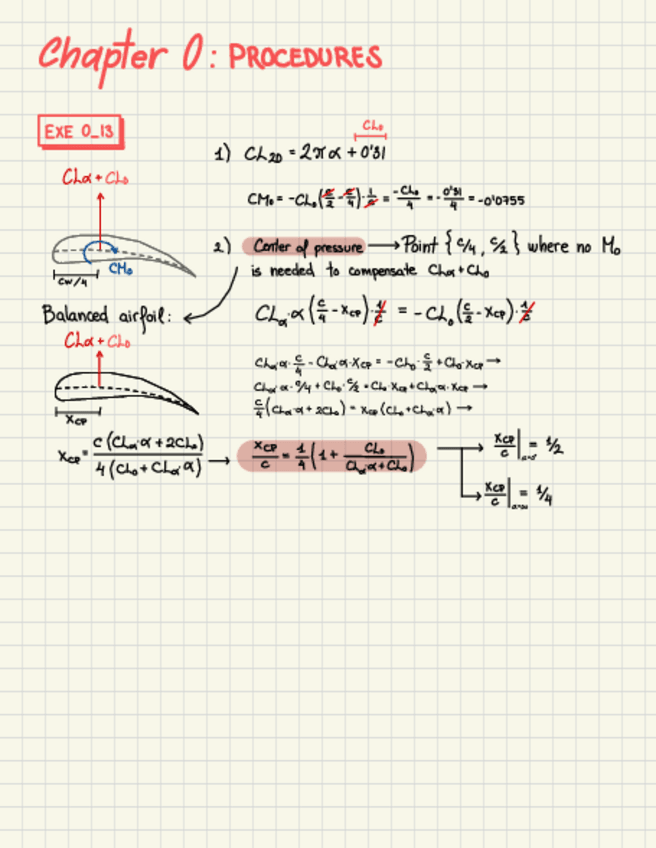 Chapter 0: PROCEDURES
EXE 0_13
CL₀
1) CL₂D = 2πα + 0'31
CLα + CL₀
CM₀ = -CL₀(c/2 - c/4)·1/c = -CL₀/4 = -0'31/4 = -0'0755
CM₀
cw/4
2) Center of pressure → Point {c/4, c/2} where no M₀
is needed to compensate CLα + CL₀
Balanced airfoil:
CLα·α(c/4 - xcp)·1/c = -CL₀(c/2 - xcp)·1/c
CLα + CL₀
xcp
CLα·α·c/4 - CLα·α·xcp = -CL₀·c/2 + CL₀·xcp →
CLα·α·c/4 + CL₀·c/2 = CL₀·xcp + CLα·α·xcp →
c/4(CLα·α + 2CL₀) = xcp(CL₀ + CLα·α) →
xcp = c(CLα·α + 2CL₀)/4(CL₀ + CLα·α) → xcp/c = 1/4(1 + CL₀/CLα·α + CL₀)
xcp/c| = 1/2
xcp/c| = 1/4